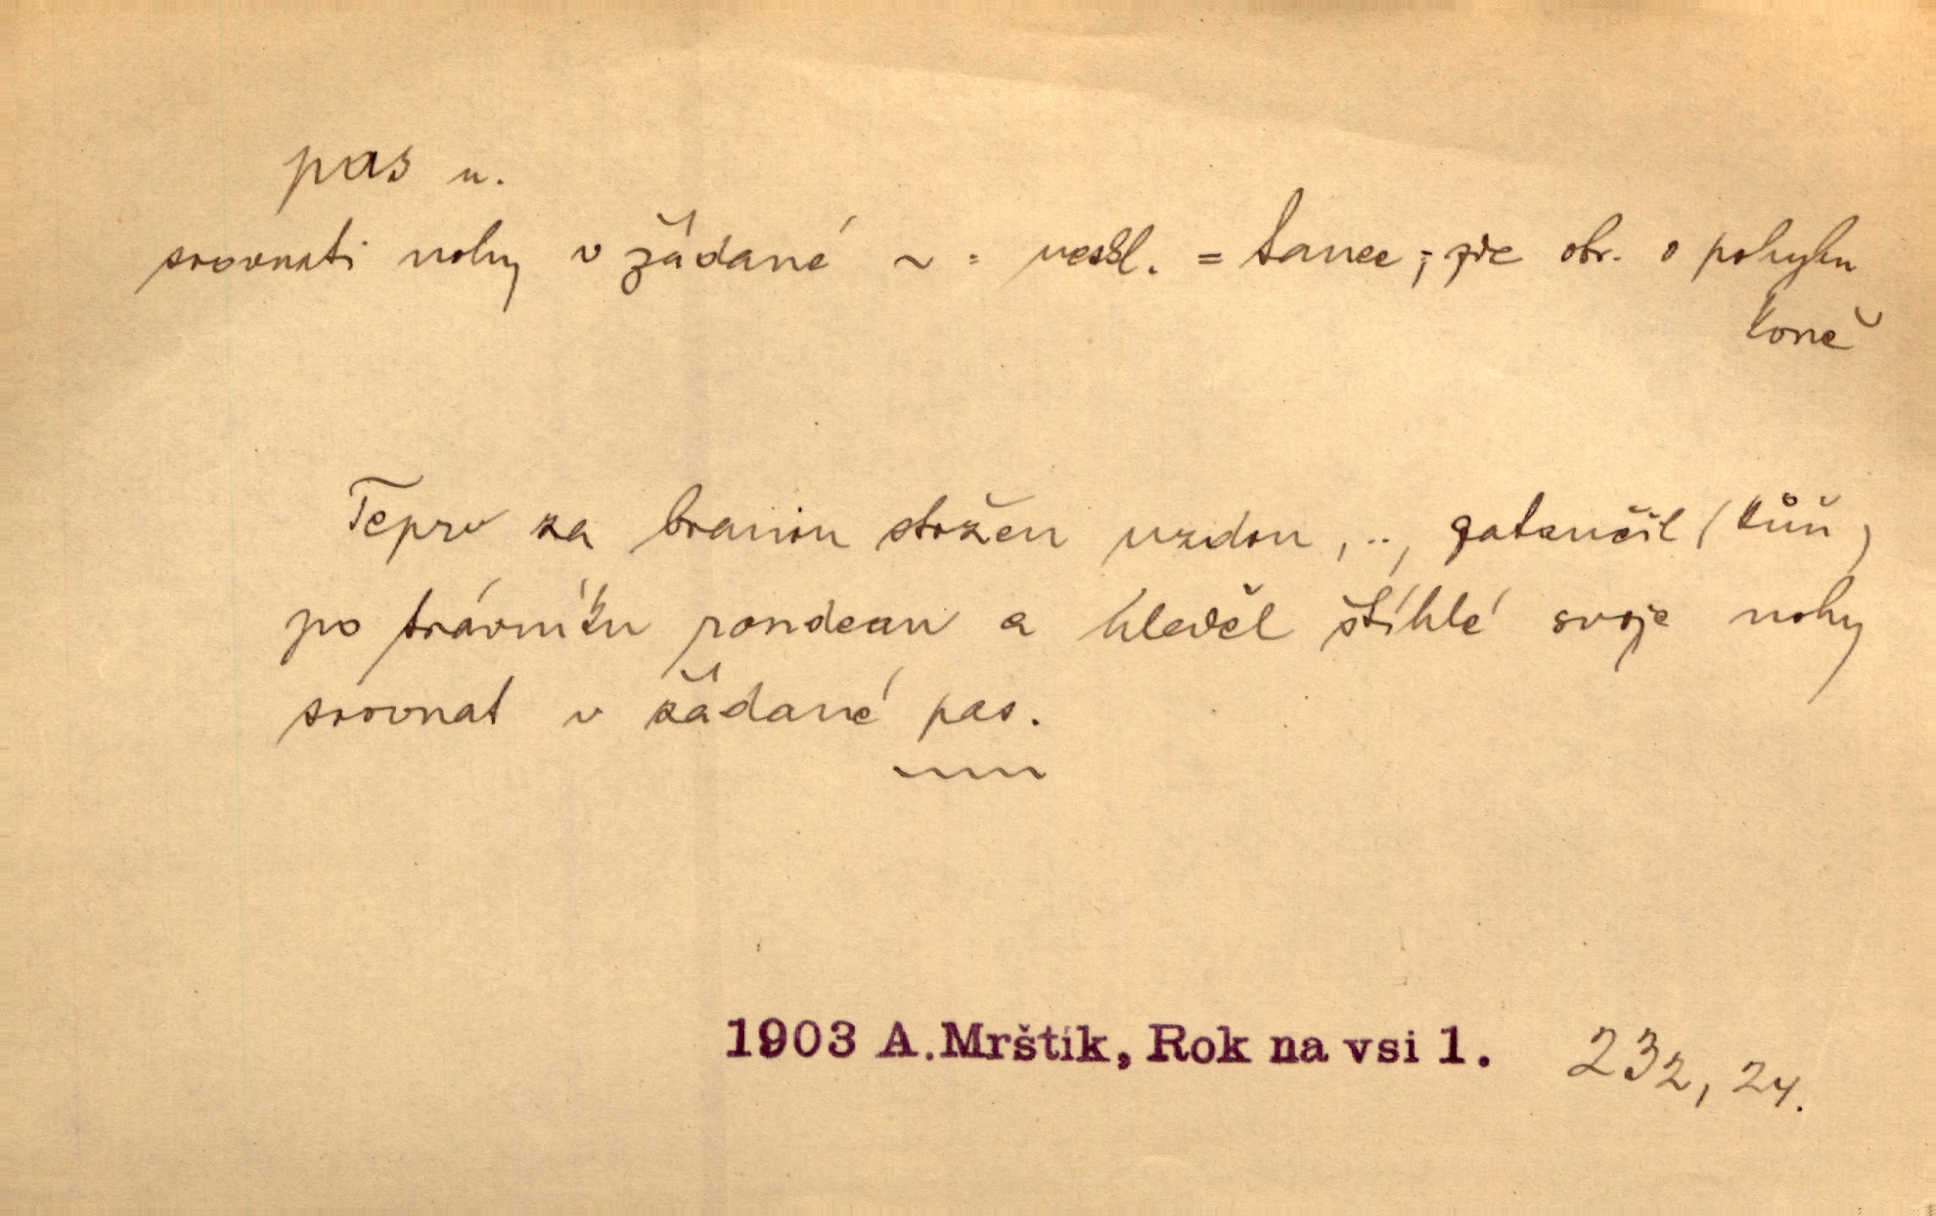 pas n.
srovnati nohy v žádané ~ = neskl. = tanec; zde obr. o pohybu
koně
Teprv za branou stržen uzdou, .., zatančil (kůň)
po trávníku rondeau a hleděl štíhlé svoje nohy
srovnat v žádané pas.
1903 A.Mrštík, Rok na vsi 1. 232, 24.